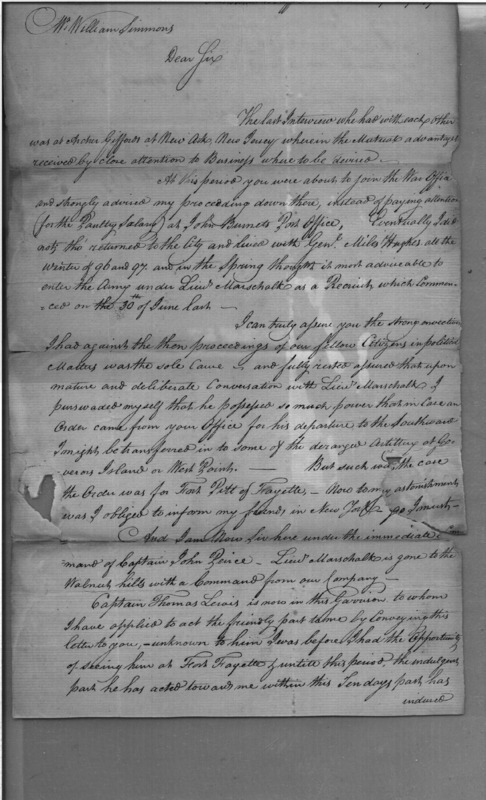 Mr William Simmons
Dear Sir
The last Interview whe had with each other
was at Archer Giffords at New Ark, New Jersey wherein the Mutual advantages
received by close attention to Business where to be derived.
At this period you were about to join the War Office
and strongly advised my proceeding down there, instead of paying attention
(for the Paultry Salary) at John Burnets Post Office, Eventually I did
act, tho returned to the City and lived with Genl. Miles Hughes all the
Winter of 96 and 97. and in the Spring thought it most advisable to
enter the Army under Lieut Marschalk as a Recruit, which Commen-
=ced on the 30th of June last
I can truly assure you the strong
I had against the then proceedings of our fellow Citizens in political
Matters was the sole Cause & and fully rested assured that upon
mature and deliberate Conversation with Lieut Marschalk I
purswaded myself that he possessed so much power that in Case an
Order came from your Office for his departure to the Southward
I might be transferred in to some of the deranged Artillery at Go-
verors Island or West Point. But such was the case
the Order was for Fort Pitt of Fayette, Now to my astonishment
was I obliged to inform my friends in New York go I must
And I am Now Sir here under the immediate Com
mand of Captain John Peirce Lieut Marschalk is gone to the
Walnut hills with a Command from our Company
Captain Thomas Lewis is now in this Garrison to whom
I have applied to act the friendly part to me by Conveying this
letter to you, unknown to him I was before I had the Opportunity
of seeing him at Fort Fayette & untill this period the indulgent
part he has acted toward me within this Ten days past has
endured